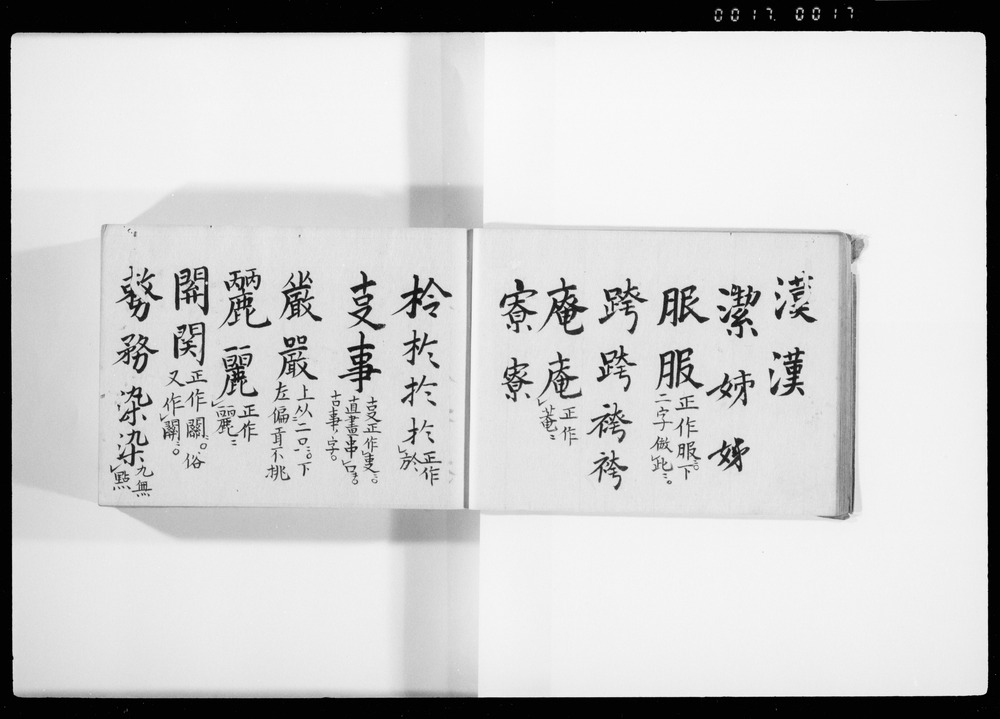 0017. 0017
漢漢
潔姊姊
服服正作服下
二字倣此
跨跨袴袴
庵庵正作
菴
寮寮
於於於於正作
於
叓事叓正作叓
直畫串口
古事字。
嚴嚴上从二口。下
左偏耳不挑
麗麗正作
麗
開関正作關。俗
又作關
務務染染九無
點